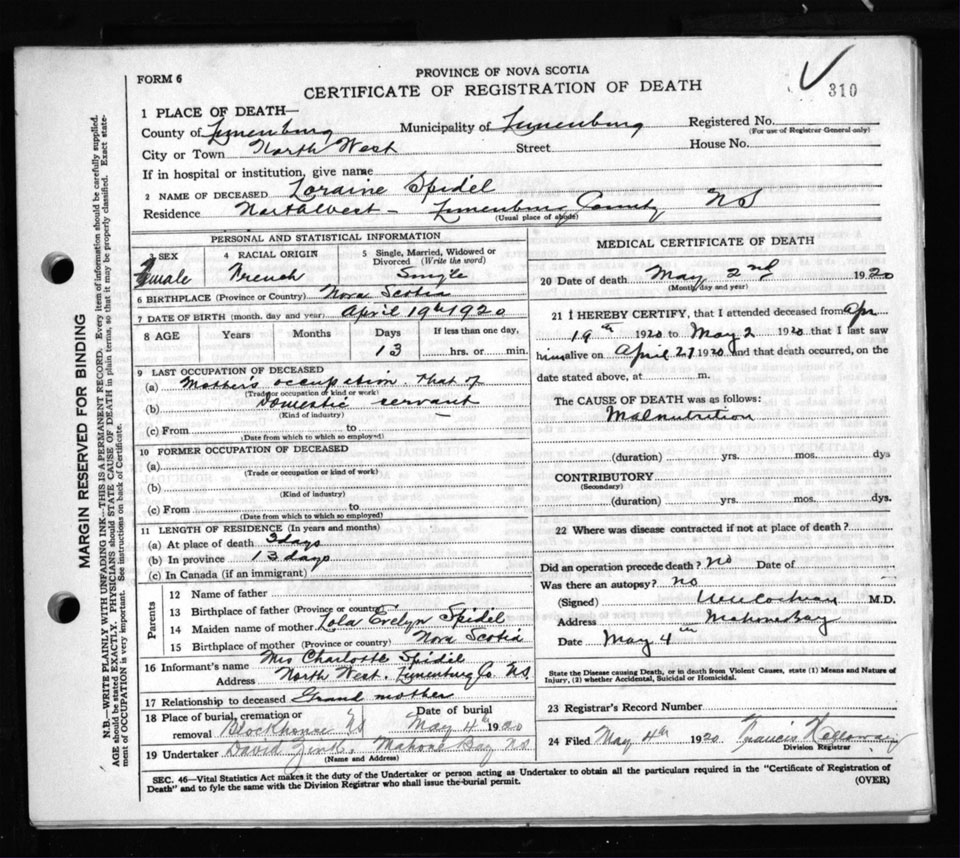 PROVINCE OF NOVA SCOTIA
FORM 6
CERTIFICATE OF REGISTRATION OF DEATH
310
1 PLACE OF DEATH—
County of Lunenburg Municipality of Lunenburg Registered No.
(For use of Registrar General only)
City or Town North West Street House No.
If in hospital or institution, give name
2 NAME OF DECEASED Loraine Spidel
Residence Northwest - Lunenburg County NS
(Usual place of abode)
PERSONAL AND STATISTICAL INFORMATION
3 SEX 4 RACIAL ORIGIN 5 Single, Married, Widowed or Divorced (Write the word)
Female French Single
6 BIRTHPLACE (Province or Country) Nova Scotia
7 DATE OF BIRTH (month, day and year) April 19th 1920
8 AGE Years Months Days If less than one day,
13 hrs. or min.
9 LAST OCCUPATION OF DECEASED
(a) Mother's occupation that of
(Trade or occupation or kind of work)
(b) Domestic servant
(Kind of industry)
(c) From to
(Date from which to which so employed)
10 FORMER OCCUPATION OF DECEASED
(a)
(Trade or occupation or kind of work)
(b)
(Kind of industry)
(c) From to
(Date from which to which so employed)
11 LENGTH OF RESIDENCE (In years and months)
(a) At place of death 3 days
(b) In province 13 days
(c) In Canada (if an immigrant)
Parents
12 Name of father
13 Birthplace of father (Province or country)
14 Maiden name of mother Lola Evelyn Spidel
15 Birthplace of mother (Province or country) Nova Scotia
16 Informant's name Mrs Charlotte Spidel
Address North West. Lunenburg Co. N.S.
17 Relationship to deceased Grand mother
18 Place of burial, cremation or removal Blockhouse NS Date of burial May 4th 1920
19 Undertaker David Zink. Mahone Bay NS
(Name and Address)
MEDICAL CERTIFICATE OF DEATH
20 Date of death May 2nd 1920
(Month, day and year)
21 I HEREBY CERTIFY, that I attended deceased from Apr
19th 1920 to May 2 1920 that I last saw
him alive on April 27 1920 and that death occurred, on the
date stated above, at m.
The CAUSE OF DEATH was as follows:
Malnutrition
(duration) yrs. mos. dys
CONTRIBUTORY
(Secondary)
(duration) yrs. mos. dys.
22 Where was disease contracted if not at place of death?
Did an operation precede death? no Date of
Was there an autopsy? no
(Signed) Cochran M.D.
Address Mahone Bay
Date May 4th
State the Disease causing Death, or in death from Violent Causes, state (1) Means and Nature of
Injury, (2) whether Accidental, Suicidal or Homicidal.
23 Registrar's Record Number
24 Filed May 4th 1920 Francis
Division Registrar
SEC. 46—Vital Statistics Act makes it the duty of the Undertaker or person acting as Undertaker to obtain all the particulars required in the "Certificate of Registration of
Death" and to fyle the same with the Division Registrar who shall issue the burial permit.
(OVER)
MARGIN RESERVED FOR BINDING
N.B.—WRITE PLAINLY WITH UNFADING INK—THIS IS A PERMANENT RECORD. Every item of information should be carefully supplied.
AGE should be stated EXACTLY. PHYSICIANS should STATE CAUSE OF DEATH in plain terms, so that it may be properly classified. Exact state-
ment of OCCUPATION is very important. See instructions on back of Certificate.